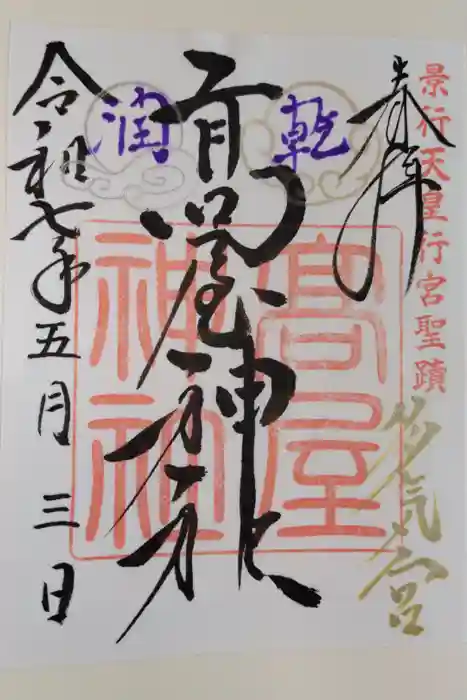 景行天皇行宮聖蹟
奉拝
多気宮
乾
高屋神社
高屋
神社
潤
令和七年五月三日